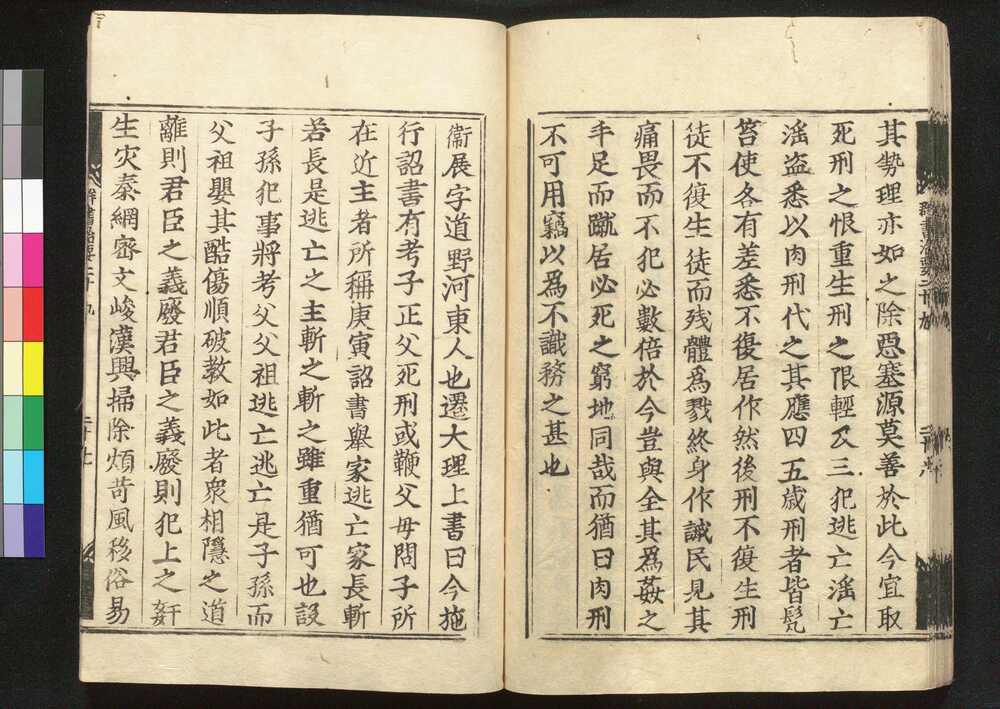 其勢理亦如之除惡塞源莫善於此今宜取
死刑之恨重生刑之限輕及三犯逃亡滛亡
滛盗悉以肉刑代之其應四五歲刑者皆髡
笞使各有差悉不復居作然後刑不復生刑
徒不復生徒而残體爲戮終身作誡民見其
痛畏而不犯必數倍於今豈與全其爲姦之
手足而蹴居必死之窮地同哉而猶曰肉刑
不可用竊以爲不識務之甚也
衞展字道野河東人也遷大理上書曰今施
行詔書有考子正父死刑或鞭父母問子所
在近主者所稱庚寅詔書舉家逃亡家長斬
若長是逃亡之主斬之雖重猶可也設
子孫犯事將考父父祖逃亡逃亡是子孫而
父祖嬰其酷傷順破教如此者衆相隱之道
離則君臣之義廢君臣之義廢則犯上之奸
生灾泰網密文峻漢興掃除煩苛風移俗易
群書治要二十九
二十七